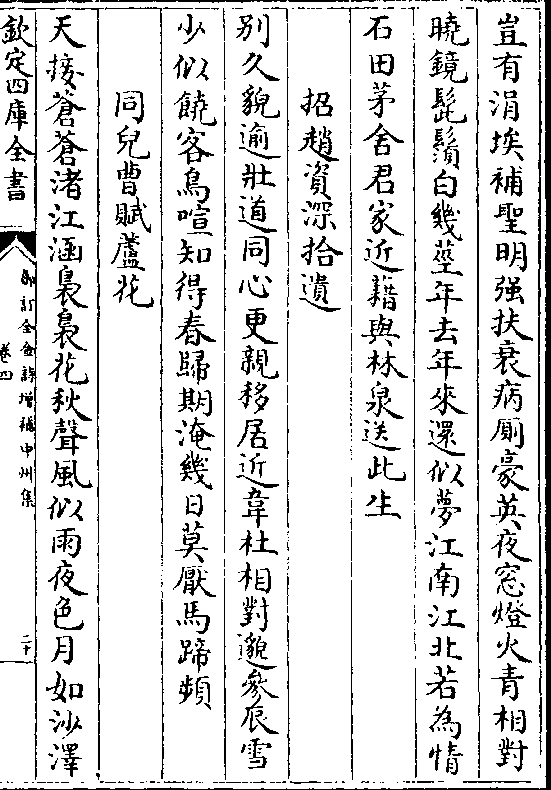 豈有涓埃補聖明强扶衰病厠豪英夜窓燈火青相對
曉鏡髭鬚白幾莖年去年來還似夢江南江北若為情
石田茅舍君家近藉與林泉送此生
招趙資深拾遺
別久貌逾壯道同心更親移居近韋杜相對邈參辰雪
少似饒客鳥喧知得春歸期淹幾日莫厭馬蹄頻
同兒曹賦蘆花
天接蒼蒼渚江涵裊裊花秋聲風似雨夜色月如沙澤
欽定四庫全書
御訂全金詩增補中州集
卷四
二十